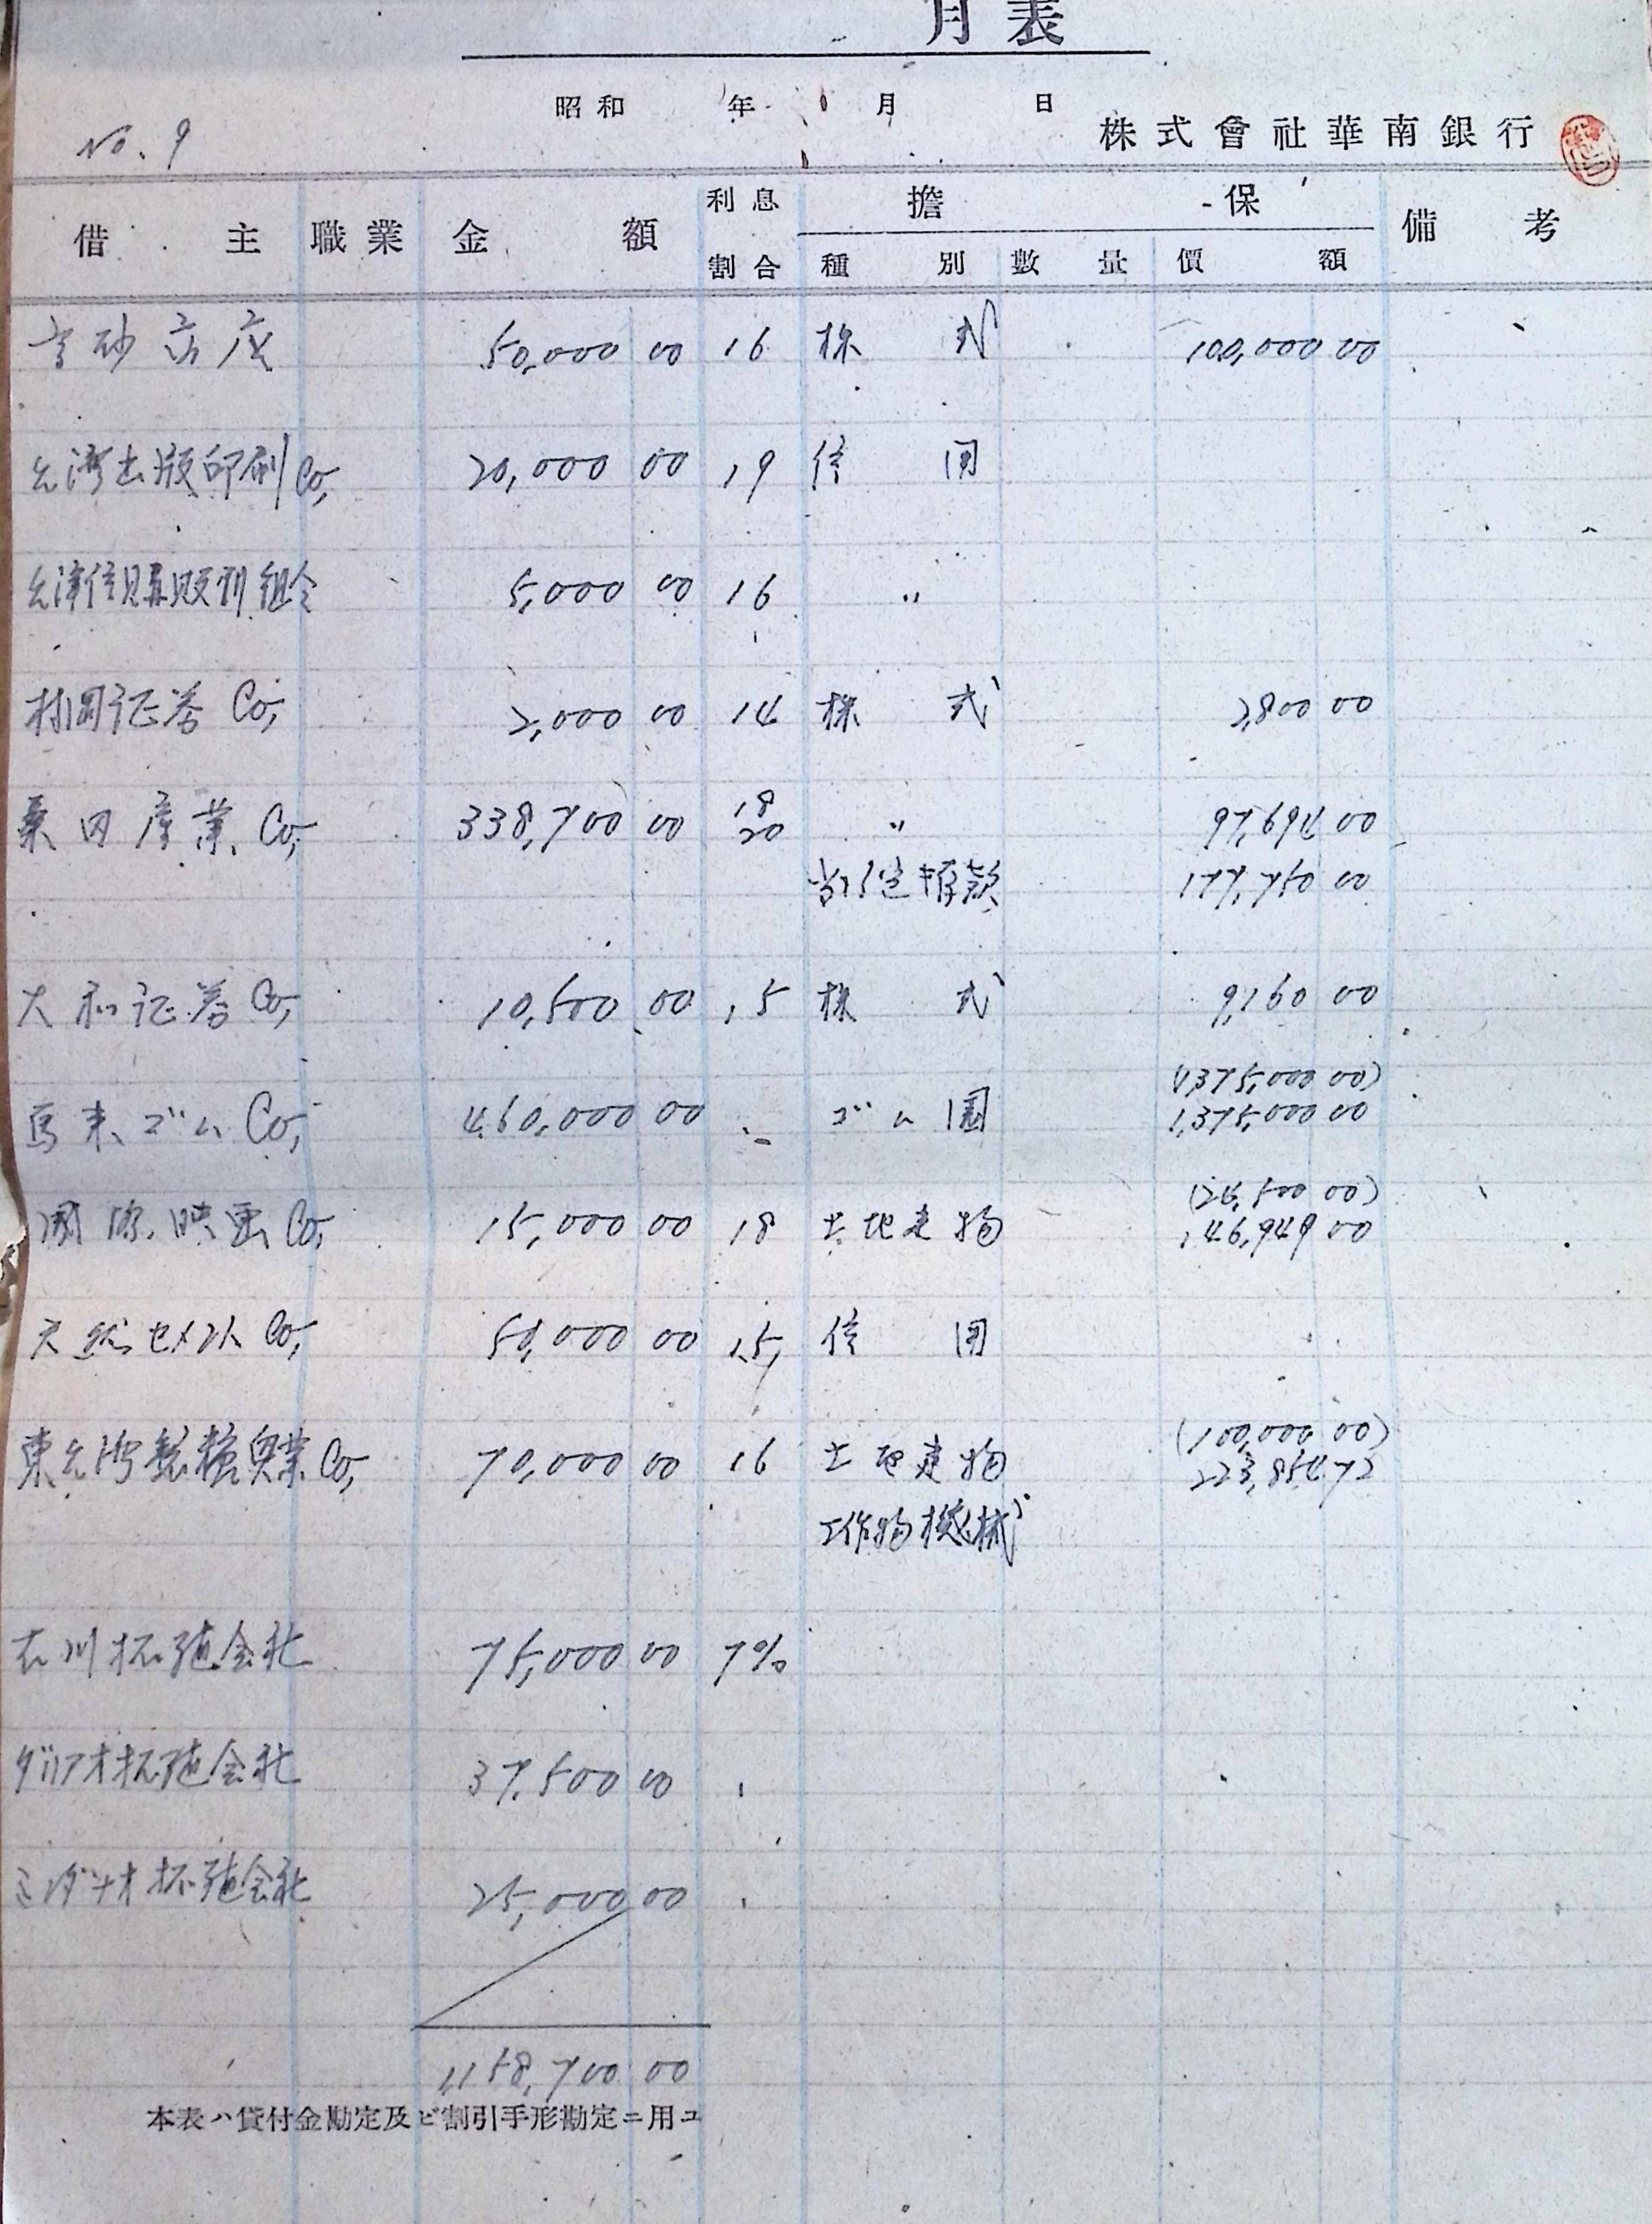 月表
昭和 年 月 日
株式會社華南銀行
No. 9
借主 職業 金額 利息割合 擔保 種別 數量 價額 備考
高砂商店 50,000 00 16 株式 100,000 00
台湾出版印刷Co, 20,000 00 19 信用
5,000 00 16 〃
村岡証券Co, 2,000 00 14 株式 2,800 00
桑田産業Co, 338,700 00 18 〃 97,694 00
20 177,750 00
大和証券Co, 10,500 00 15 株式 9,160 00
(1,375,000 00)
馬来ゴムCo, 460,000 00 ゴム園 1,375,000 00
(26,500 00)
国際映画Co, 15,000 00 18 土地建物 146,949 00
天然セメントCo, 50,000 00 15 信用
(100,000 00)
東台湾製糖興業Co, 70,000 00 16 土地建物 223,854 72
工作物機械
石川拓殖会社 75,000 00 7%
ダバオ拓殖会社 37,500 00
ミンダナオ拓殖会社 25,000 00
1,158,700 00
本表ハ貸付金勘定及ビ割引手形勘定ニ用ユ